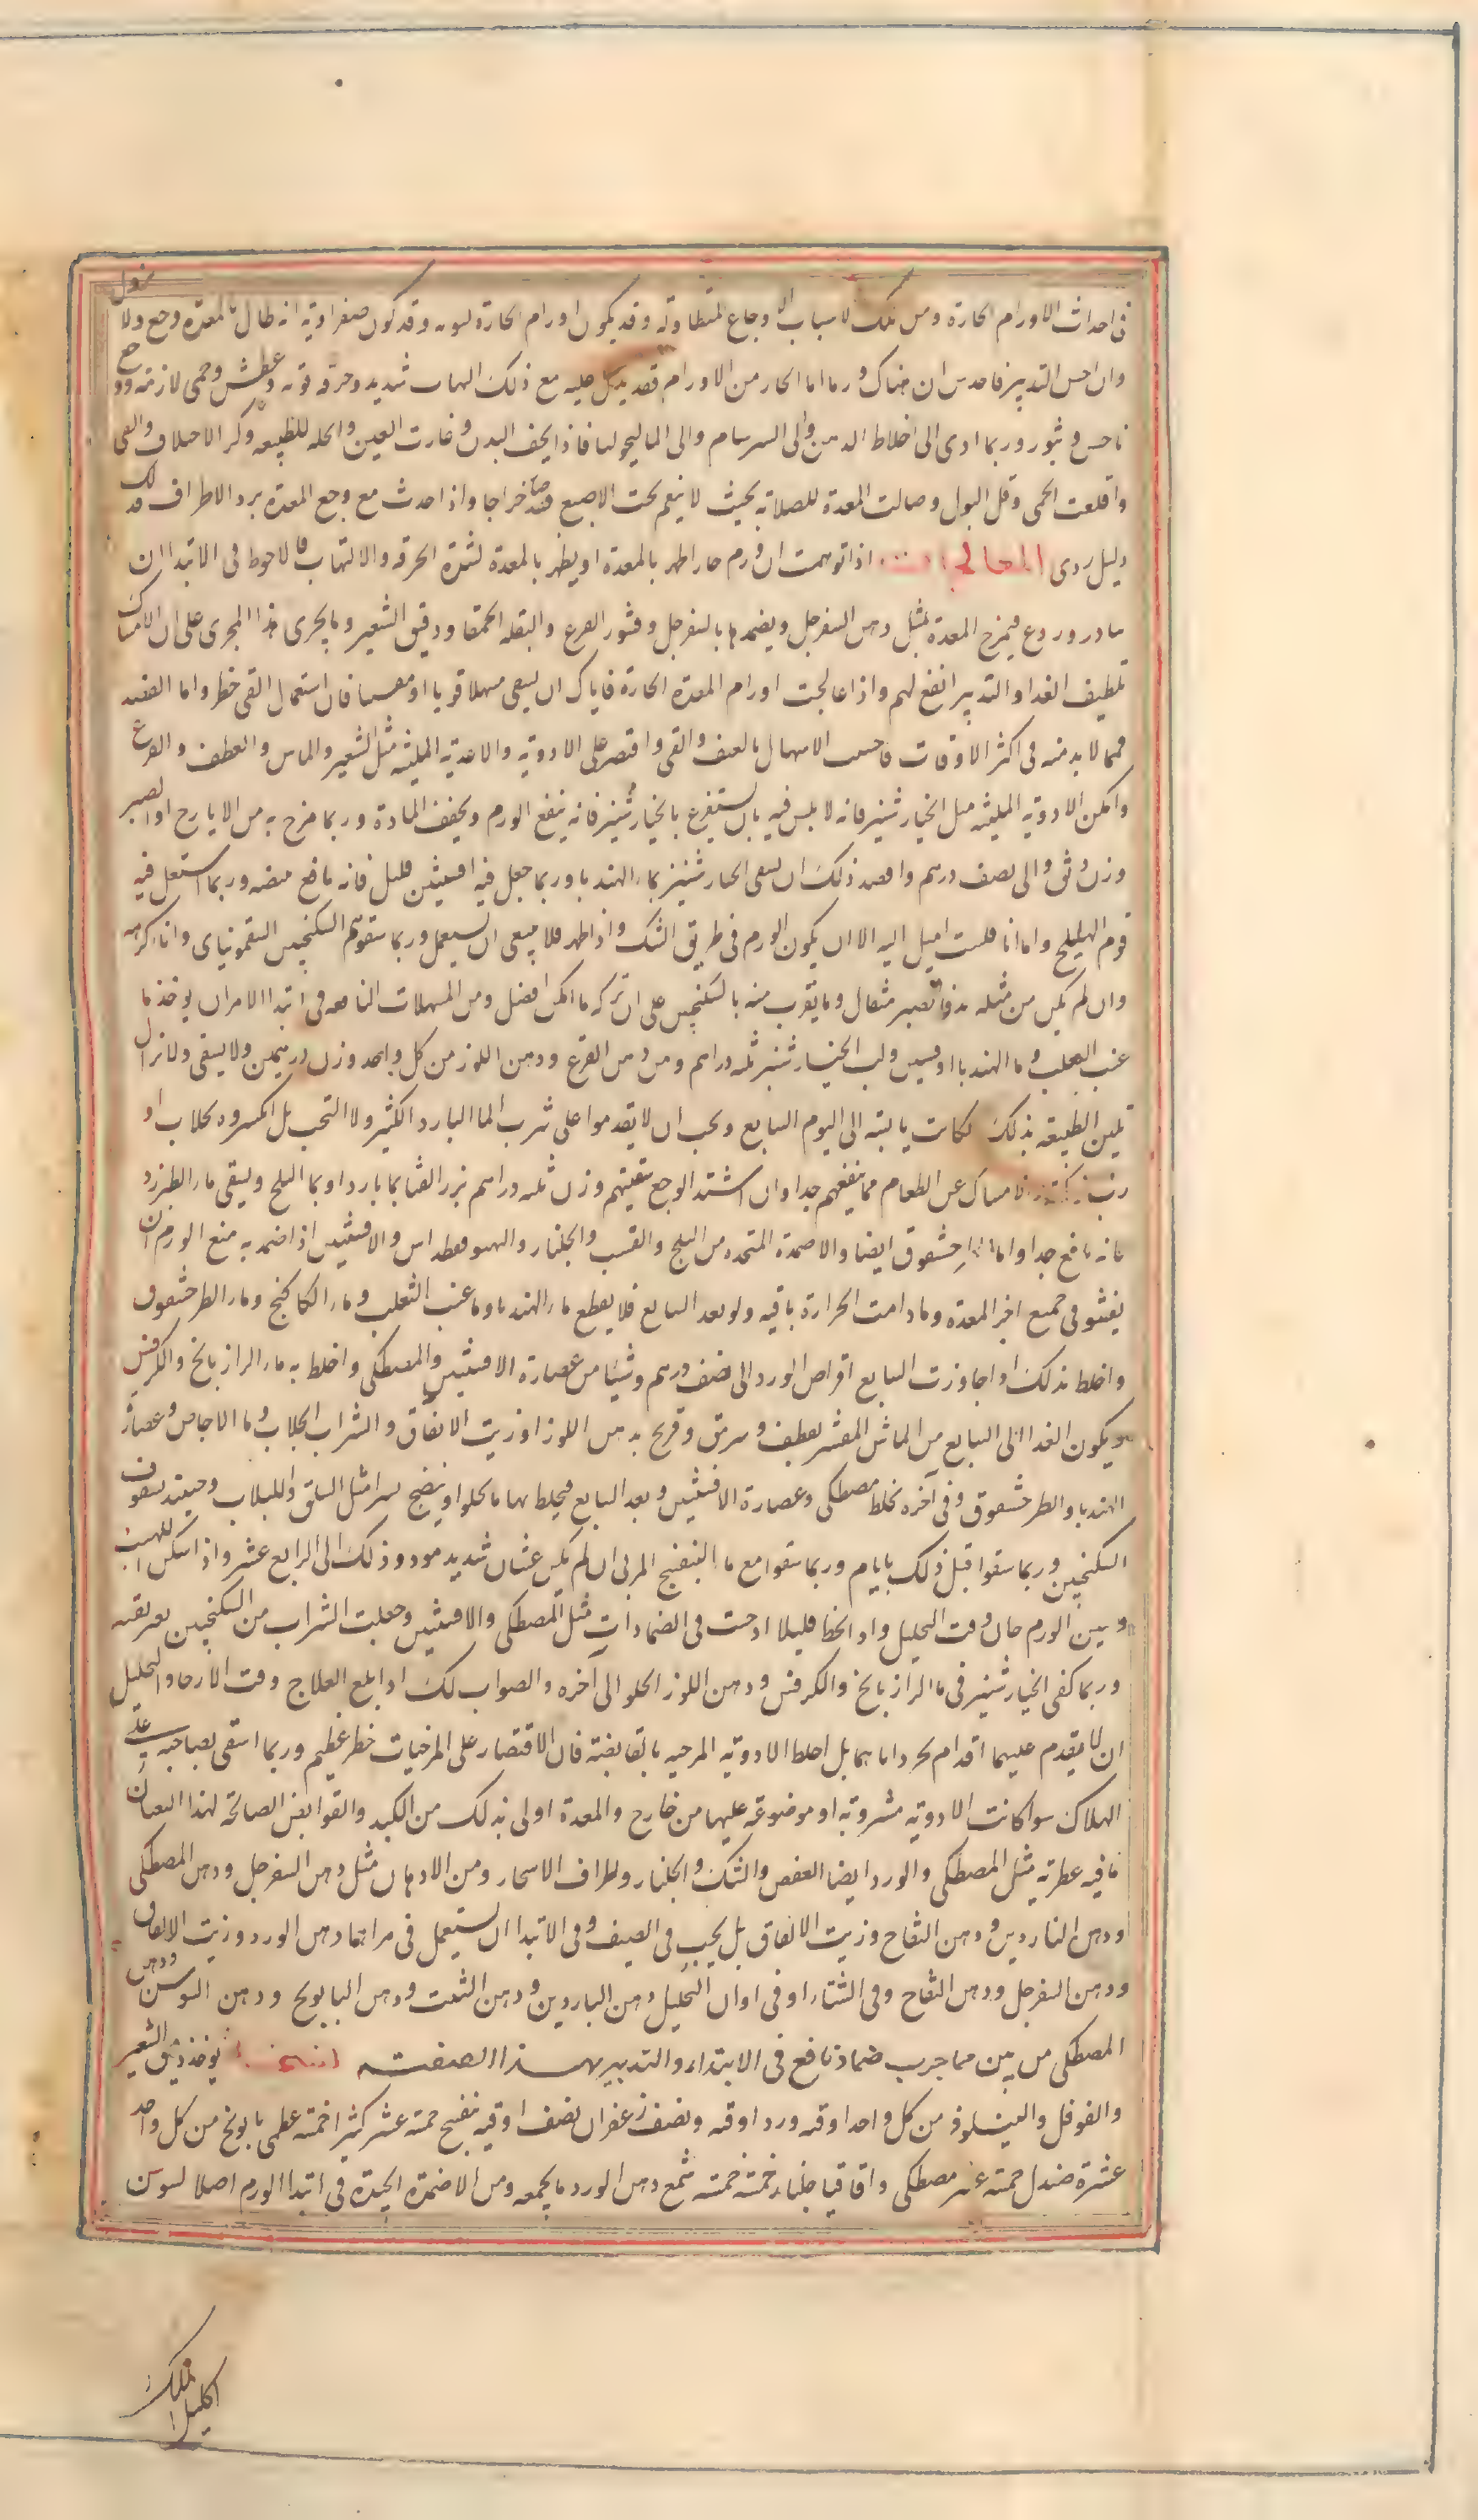 فى احداث الاورام الحارة ومن تلك الاسباب الاوجاع المتطاولة وقد يكون اورام الحارة دموية وقد تكون صفراوية انه طال بالمعدة وجع ولا يزول
وان احس التدبير فاحدس ان هناك ورما اما الحار من الاورام فقد يدل عليه مع ذلك التهاب شديد وحرقة قوية وعطش وحمى لازمة ووجع
ناخس وثبور وربما ادى الى اختلاط الذهن والى السرسام والى الماليخوليا فاذا نحف البدن وغارت العين وانحله للطبيعة وكثر الاختلاف والقى
واقلعت الحمى وقل البول وصالت المعدة للصلابة بحيث لا ينغمر تحت الاصبع فقد صار خراجا واذا حدث مع وجع المعدة برد الاطراف فذلك
دليل ردى المعالجات اذا توهمت ان ورم حار اظهر بالمعدة او يظهر بالمعدة لشدة الحرقة والالتهاب فالاحوط فى الابتدا ان
يبادر وردع فيمرخ المعدة بمثل دهن السفرجل ويضمدها بالسفرجل وقشور القرع والبقلة الحمقا ودقيق الشعير وما يجرى هذا المجرى على ان الامساك
تلطيف الغذا والتدبير انفع لهم واذا عالجت اورام المعدة الحارة فاياك ان تسقى مسهلا قويا او مقييا فان استعمال القى خطر واما الفصد
فمما لا بد منه فى اكثر الاوقات فاجتنب الاسهال بالعنف والقى واقتصر على الادوية والاغذية الملينة مثل الشعير والماش والقطف والقرع
وامكن الادوية الملينة مثل الخيار شنبر فانه لا باس فيه بان يستفرغ بالخيار شنبر فانه ينفع الورم ويجفف المادة وربما مزج به من الايارج او الصبر
وزن دانق والى نصف درهم وافضل ذلك ان يسقى الخيار شنبر بماء الهندبا وربما جعل فيه افسنتين قليل فانه نافع منضج وربما استعمل فيه
قوم الهليلج واما انا فلست اميل اليه الا ان يكون الورم فى طريق الشك واذا ظهر فلا ينبغى ان يستعمل وربما سقوهم السكنجبين السقمونياى وانا اكرهه
وان لم يكن من مثله بد فالصبر مثقال وما يقرب منه بالسكنجبين على ان تركه ما امكن افضل ومن المسهلات النافعة فى ابتدا الامر ان يوخذ ما
عنب الثعلب وما الهندبا اوقيتين ولب الخيار شنبر ثلثة دراهم ومن دهن القرع ودهن اللوز من كل واحد وزن درهمين ولا يسقى ولا تزال
تلين الطبيعة بذلك لكانت يابسة الى اليوم السابع ويجب ان لا يقدموا على شرب الما البارد الكثير ولا التحت بل اكسروه بجلاب او
رب الامساك عن الطعام مما ينفعهم جدا وان اشتد الوجع سقيتهم وزن ثلثة دراهم بزر القثا بما بارد او بما الثلج ويسقى ماء الطبرزد
فانه نافع جدا واما حشقوق ايضا والاضمدة المتخذة من البلح والقسب والجلنار والافسنتين اذا ضمد به منع الورم ان
يفشو فى جميع اجزا المعدة وما دامت الحرارة باقية ولو بعد السابع فلا يقطع ماء الهندبا وما عنب الثعلب وماء الكاكنج وماء الطرخشقوق
واخلط بذلك اذا جاوزت السابع اقراص الورد الى نصف درهم وشيئا من عصارة الافسنتين والمصطكى واخلط به ماء الرازيانج والكرفس
ويكون الغذا الى السابع من الماش المقشر بقطف وسرمق وقرع بدهن اللوز او زيت الانفاق والشراب الجلاب وما الاجاص وعصارة
الهندبا والطرخشقوق وفى آخره يخلط مصطكى وعصارة الافسنتين وبعد السابع فيخلط بها ما يحلل وينضج يسيرا مثل السلق واللبلاب وحينئذ يسقون
السكنجبين وربما سقوا قبل ذلك بايام وربما سقوا مع ما البنفسج المربى ان لم يكن غثيان شديد موذ وذلك الى الرابع عشر واذا سكن اللهيب
وبين الورم حان وقت التحليل واذ انحط قليلا ادخلت فى الضمادات مثل المصطكى والافسنتين وجعلت الشراب من السكنجبين بعريقته
وربما كفى الخيار شنبر فى ما الرازيانج والكرفس ودهن اللوز الحلو الى آخره والصواب لك اذا بلغ العلاج وقت الارخاء والتحليل
ان لا يقدم عليهما اقدام مجرد اياهما بل اخلط الادوية المرخية بالقابضة فان الاقتصار على المرخيات خطر عظيم وربما اشفى بصاحبه على
الهلاك سوا كانت الادوية مشروبة او موضوعة عليها من خارج والمعدة اولى بذلك من الكبد والقوابض الصالحة لهذا الشان
ما فيه عطرية مثل المصطكى والورد ايضا العفص والسك والجلنار واطراف الاشجار ومن الادهان مثل دهن السفرجل ودهن المصطكى
ودهن الناردين ودهن التفاح وزيت الانفاق بل يجب فى الصيف وفى الابتدا ان يستعمل فى مراهمها دهن الورد وزيت الانفاق
ودهن السفرجل ودهن التفاح وفى الشتاء او فى اوان التحليل دهن الناردين ودهن الشبت ودهن البابونج ودهن السوسن ودهن
المصطكى من بين مما جرب ضماد نافع فى الابتداء والتدبير بهذا الصفته يوخذ دقيق الشعير
والفوفل والنيلوفر من كل واحد اوقية ورد اوقية ونصف زعفران نصف اوقية بنفسج خمسة عشر كثيرا خمسة خطمى بابونج من كل واحد
عشرة صندل خمسة عشر مصطكى واقاقيا جلنار خمسة خمسة شمع دهن الورد ما يجمعه ومن الاضمدة الجيدة فى ابتدا الورم اصل السوسن
اكليل الملك